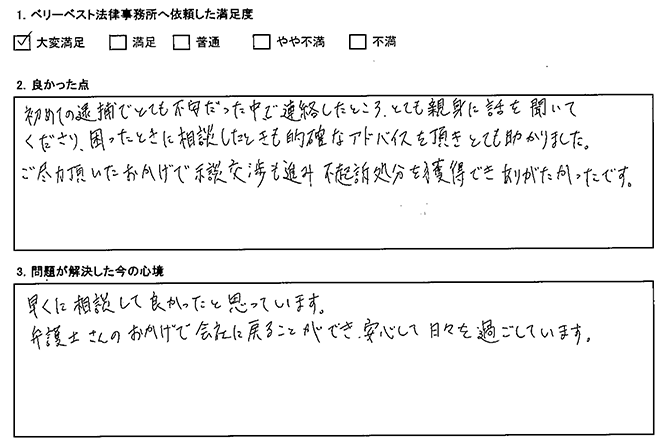 1. ベリーベスト法律事務所へ依頼した満足度
☑ 大変満足 □ 満足 □ 普通 □ やや不満 □ 不満
2. 良かった点
初めての逮捕でとても不安だった中で連絡したところ、とても親身に話を聞いて
くださり、困ったときに相談したときも的確なアドバイスを頂きとても助かりました。
ご尽力頂いたおかげで示談交渉も進み不起訴処分を獲得でき ありがたかったです。
3. 問題が解決した今の心境
早くに相談して良かったと思っています。
弁護士さんのおかげで会社に戻ることができ、安心して日々を過ごしています。